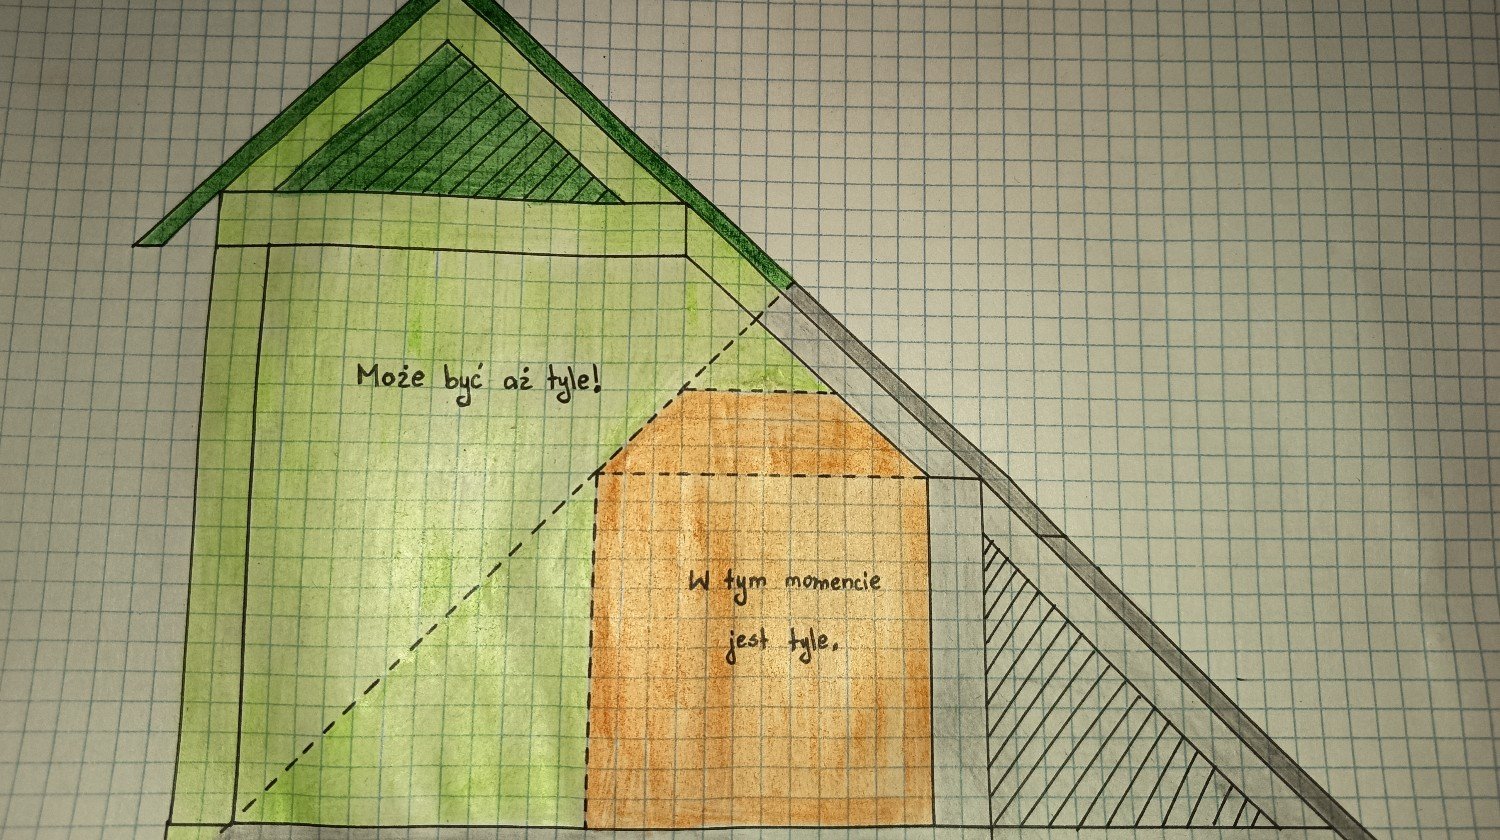 Może być aż tyle!
W tym momencie
jest tyle.